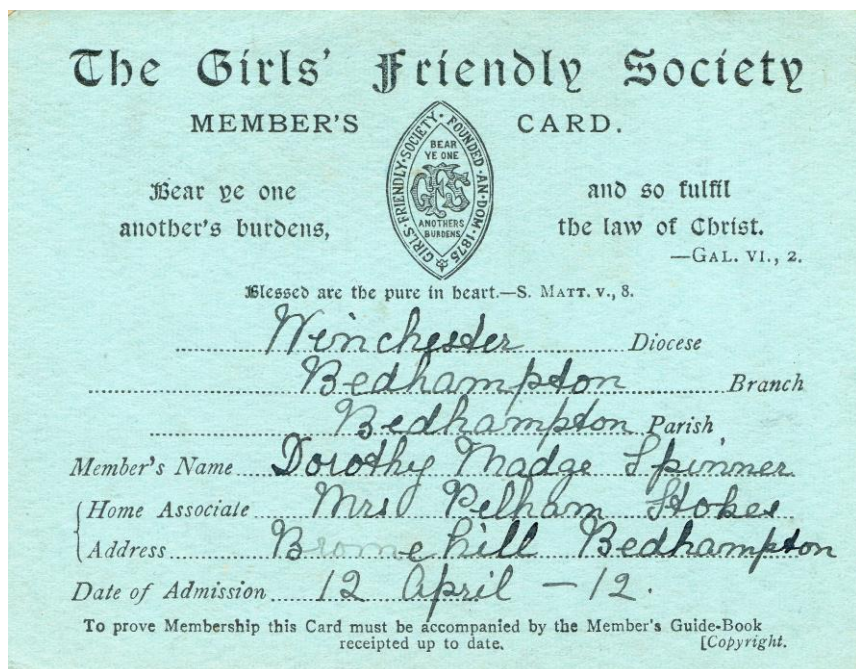 The Girls' Friendly Society
MEMBER'S CARD.
GIRLS·FRIENDLY·SOCIETY· FOUNDED·AN·DOM·1875
BEAR
YE ONE
GFS
ANOTHERS
BURDENS
Bear ye one
another's burdens,
and so fulfil
the law of Christ.
—GAL. VI., 2.
Blessed are the pure in heart.—S. MATT. V., 8.
Winchester Diocese
Bedhampton Branch
Bedhampton Parish
Member's Name Dorothy Madge Spinner
Home Associate Mrs Pelham Stokes
Address Bromehill Bedhampton
Date of Admission 12 April – 12.
To prove Membership this Card must be accompanied by the Member's Guide-Book
receipted up to date. [Copyright.